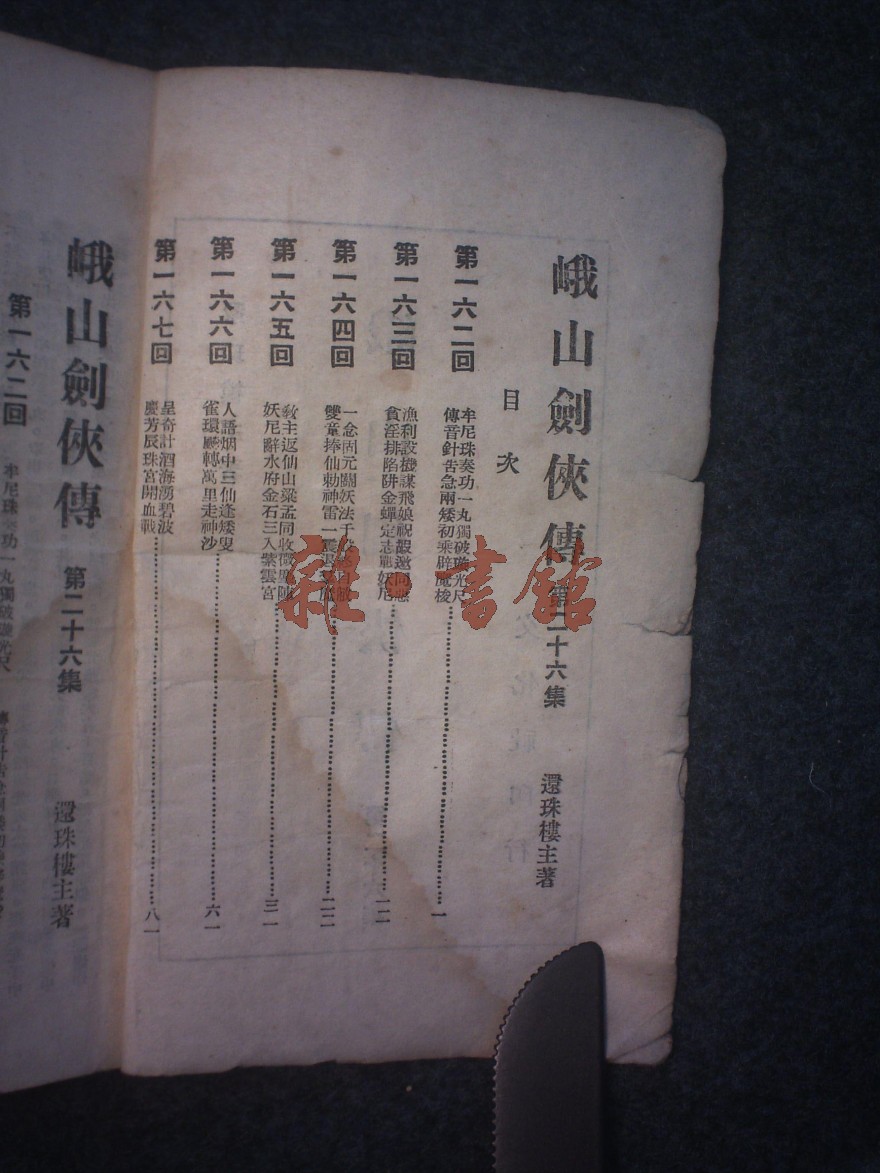 峨山劍俠傳 第二十六集 還珠樓主著
目次
第一六二回 牟尼珠奏功一丸獨破璇光尺
傳音針告急兩矮初乘辟魔梭 一
第一六三回 漁利設機謀飛娘祝嘏邀同惡
貪淫排陷阱金蟬定志戰妖尼 一二
第一六四回 一念固元關妖法于
雙童捧仙勅神雷一震 二二
第一六五回 敎主返仙山梁孟同收微塵陣
妖尼辭水府金石三入紫雲宮 三一
第一六六回 人語烟中三仙逢矮叟
雀環飈轉萬里走神沙 六一
第一六七回 呈奇計酒海湧碧波
慶芳辰珠宮開血戰 八一
峨山劍俠傳 第二十六集 還珠樓主著
第一六二回 牟尼珠 功一丸獨破璇光尺
雜·書館